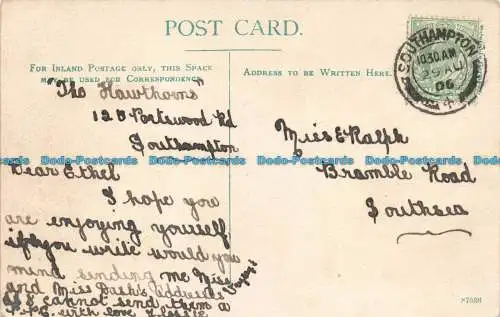 POST CARD.
FOR INLAND POSTAGE ONLY, THIS SPACE
MAY BE USED FOR CORRESPONDENCE.
ADDRESS TO BE WRITTEN HERE.
SOUTHAMPTON
10.30 AM
29 AU
06
"The Hawthorns"
120 Portswood Rd
Southampton
Dear Ethel
I hope you
are enjoying yourself
if you write would you
mind sending me Miss
and Miss Dash's address
as I cannot send them a
P.P.C. with love
Miss E Ralph
Bramble Road
Southsea
Dodo-Postcards Dodo-Postcards Dodo-Postcards Dodo-Postcards Dodo-Postcards